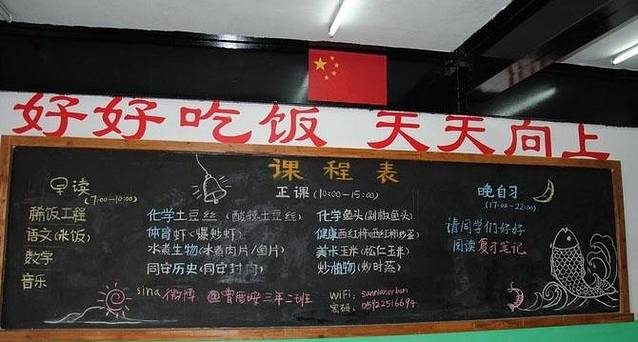 好好吃饭 天天向上
课程表
早读
(7:00-10:00)
稀饭工程
语文(米饭)
数学
音乐
正课(10:00-15:00)
化学土豆丝(酸辣土豆丝)
体育虾(爆炒虾)
水煮生物(水煮肉片/鱼片)
同安历史(同安封肉)
化学鱼头(剁椒鱼头)
健康西红柿(西红柿炒蛋)
美术玉米(松仁玉米)
炒植物(炒时蔬)
晚自习
(17:00-22:00)
请同学们好好
阅读复习笔记
sina微博: @曾厝垵三年二班
WiFi:
密码: 05922516694